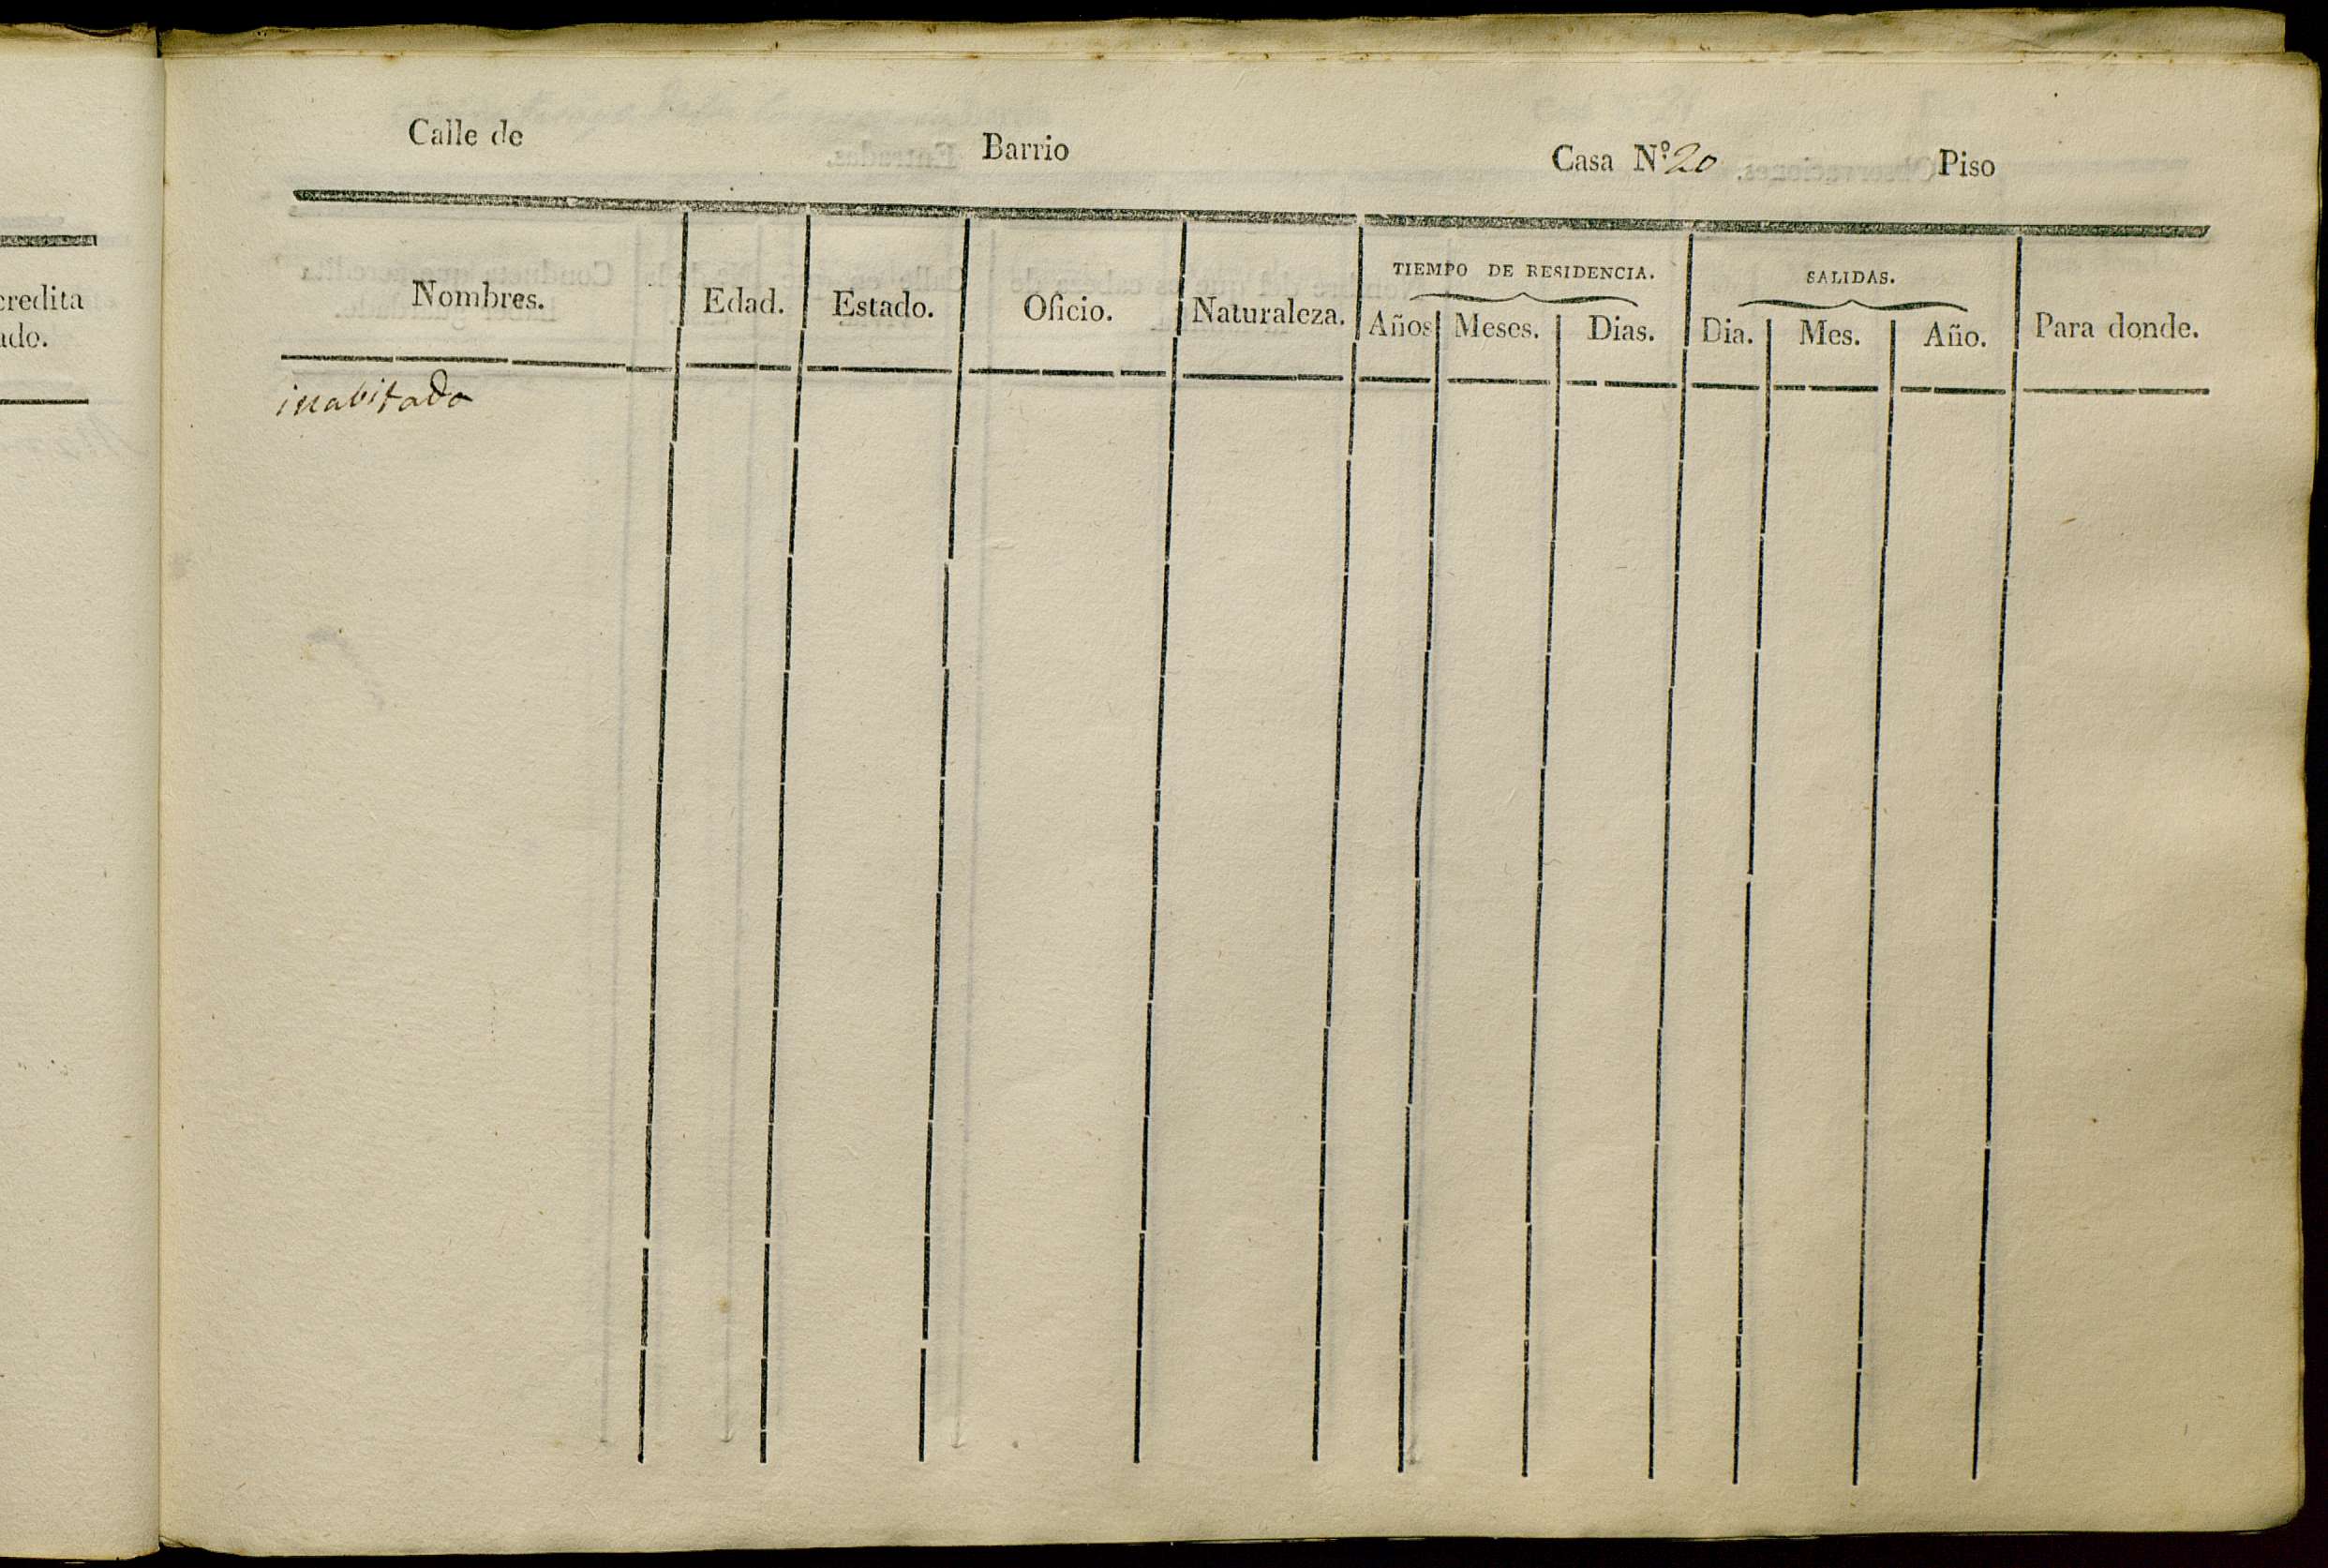 credita
ado.
Calle de Barrio Casa Nº 20 Piso
Nombres. Edad. Estado. Oficio. Naturaleza. TIEMPO DE RESIDENCIA. SALIDAS. Para donde.
Años Meses. Dias. Dia. Mes. Año.
inabitado